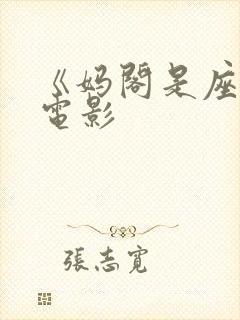 《妈阁是座
電影
張志寬